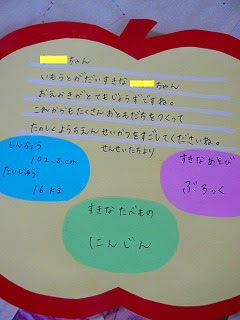 ちゃん
いもうとがだいすきな ちゃん
おえかきがとてもじょうずですね。
これからもたくさんおともだちをつくって
たのしくようちえんせいかつをすごしてくださいね。
せんせいたちより
しんちょう
102.8cm
たいじゅう
16kg
すきなあそび
ぶろっく
すきなたべもの
にんじん